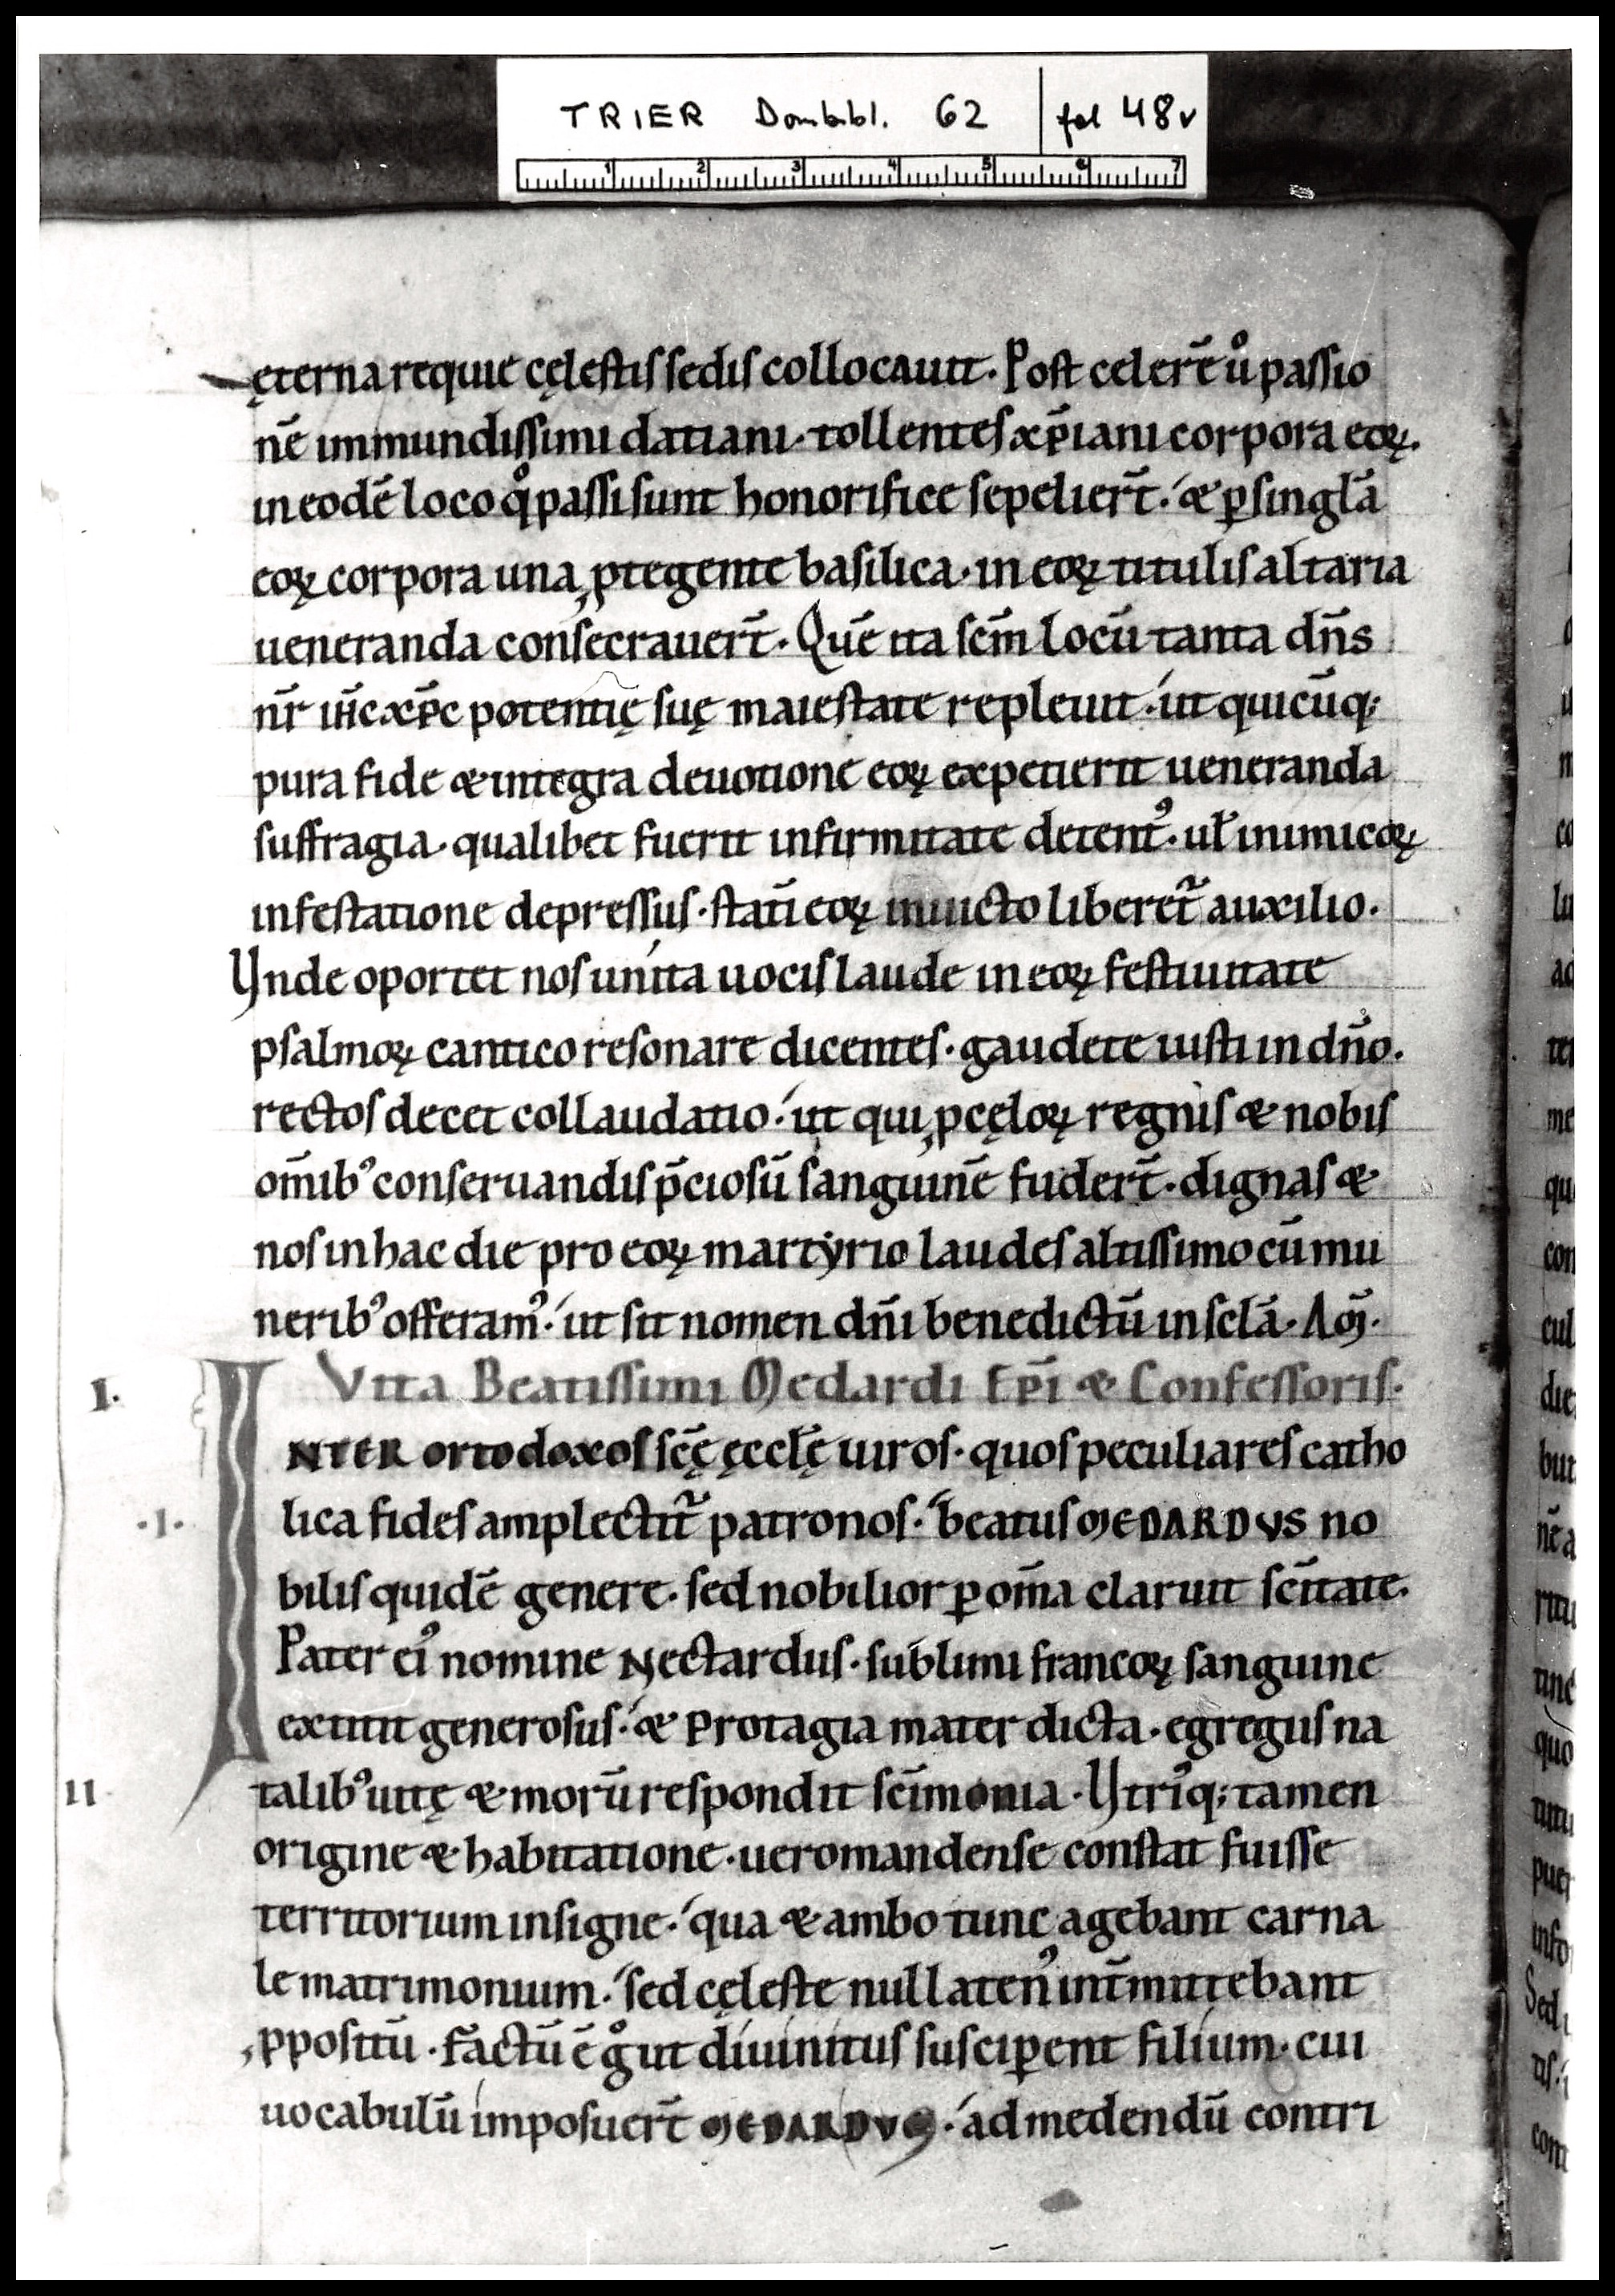 TRIER Dombibl. 62 fol 48v
1 2 3 4 5 6 7
ęterna requie cęlestis sedis collocauit. Post celerē u͛o passio
nē immundissimi datiani. tollentes xp̄iani corpora eoꝝ.
in eodē loco qͦ passi sunt honorifice sepelier̄t. & ꝑ singl̄a
eoꝝ corpora una ꝓtegente basilica. in eoꝝ titulis altaria
ueneranda consecrauer̄t. Quē ita sc̄m locū tanta dn̄s
nr̄ ih̄c xp̄c potentię suę maiestate repleuit. ut quicūq;
pura fide & integra deuotione eoꝝ expetierit ueneranda
suffragia. qualibet fuerit infirmitate detentꝰ. ul̄ inimicoꝝ
infestatione depressus. statī eoꝝ inuicto liberet᷑ auxilio.
Vnde oportet nos unita uocis laude in eoꝝ festiuitate
psalmoꝝ cantico resonare dicentes. gaudete iusti in dn̄o.
rectos decet collaudatio. ut qui ꝓ cęloꝝ regnis & nobis
om̄ibꝰ conseruandis p̄ciosū sanguinē fuder̄t. dignas &
nos in hac die pro eoꝝ martyrio laudes altissimo cū mu
neribꝰ offeramꝰ. ut sit nomen dn̄i benedictū in sc̄la. Am̄.
I. Vita Beatissimi Medardi Ep̄i & Confessoris.
INTER ortodoxos sc̄ę ęccl̄ę uiros. quos peculiares catho
.I. lica fides amplectit᷑ patronos. beatus MEDARDVS no
bilis quidē genere. sed nobilior ꝑ om̄a claruit sc̄itate.
Pater eiꝰ nomine Nectardus. sublimi francoꝝ sanguine
extitit generosus. & Protagia mater dicta. egregiis na
II talibꝰ uitę & morū respondit sc̄imonia. Vtriꝰq; tamen
origine & habitatione. ueromandense constat fuisse
territorium insigne. qua & ambo tunc agebant carna
le matrimonium. sed cęleste nullatenꝰ int̄mittebant
ꝓpositū. Factū ē gͦ ut diuinitus susciꝑent filium. cui
uocabulū imposuer̄t MEDARDVS. ad medendū contri